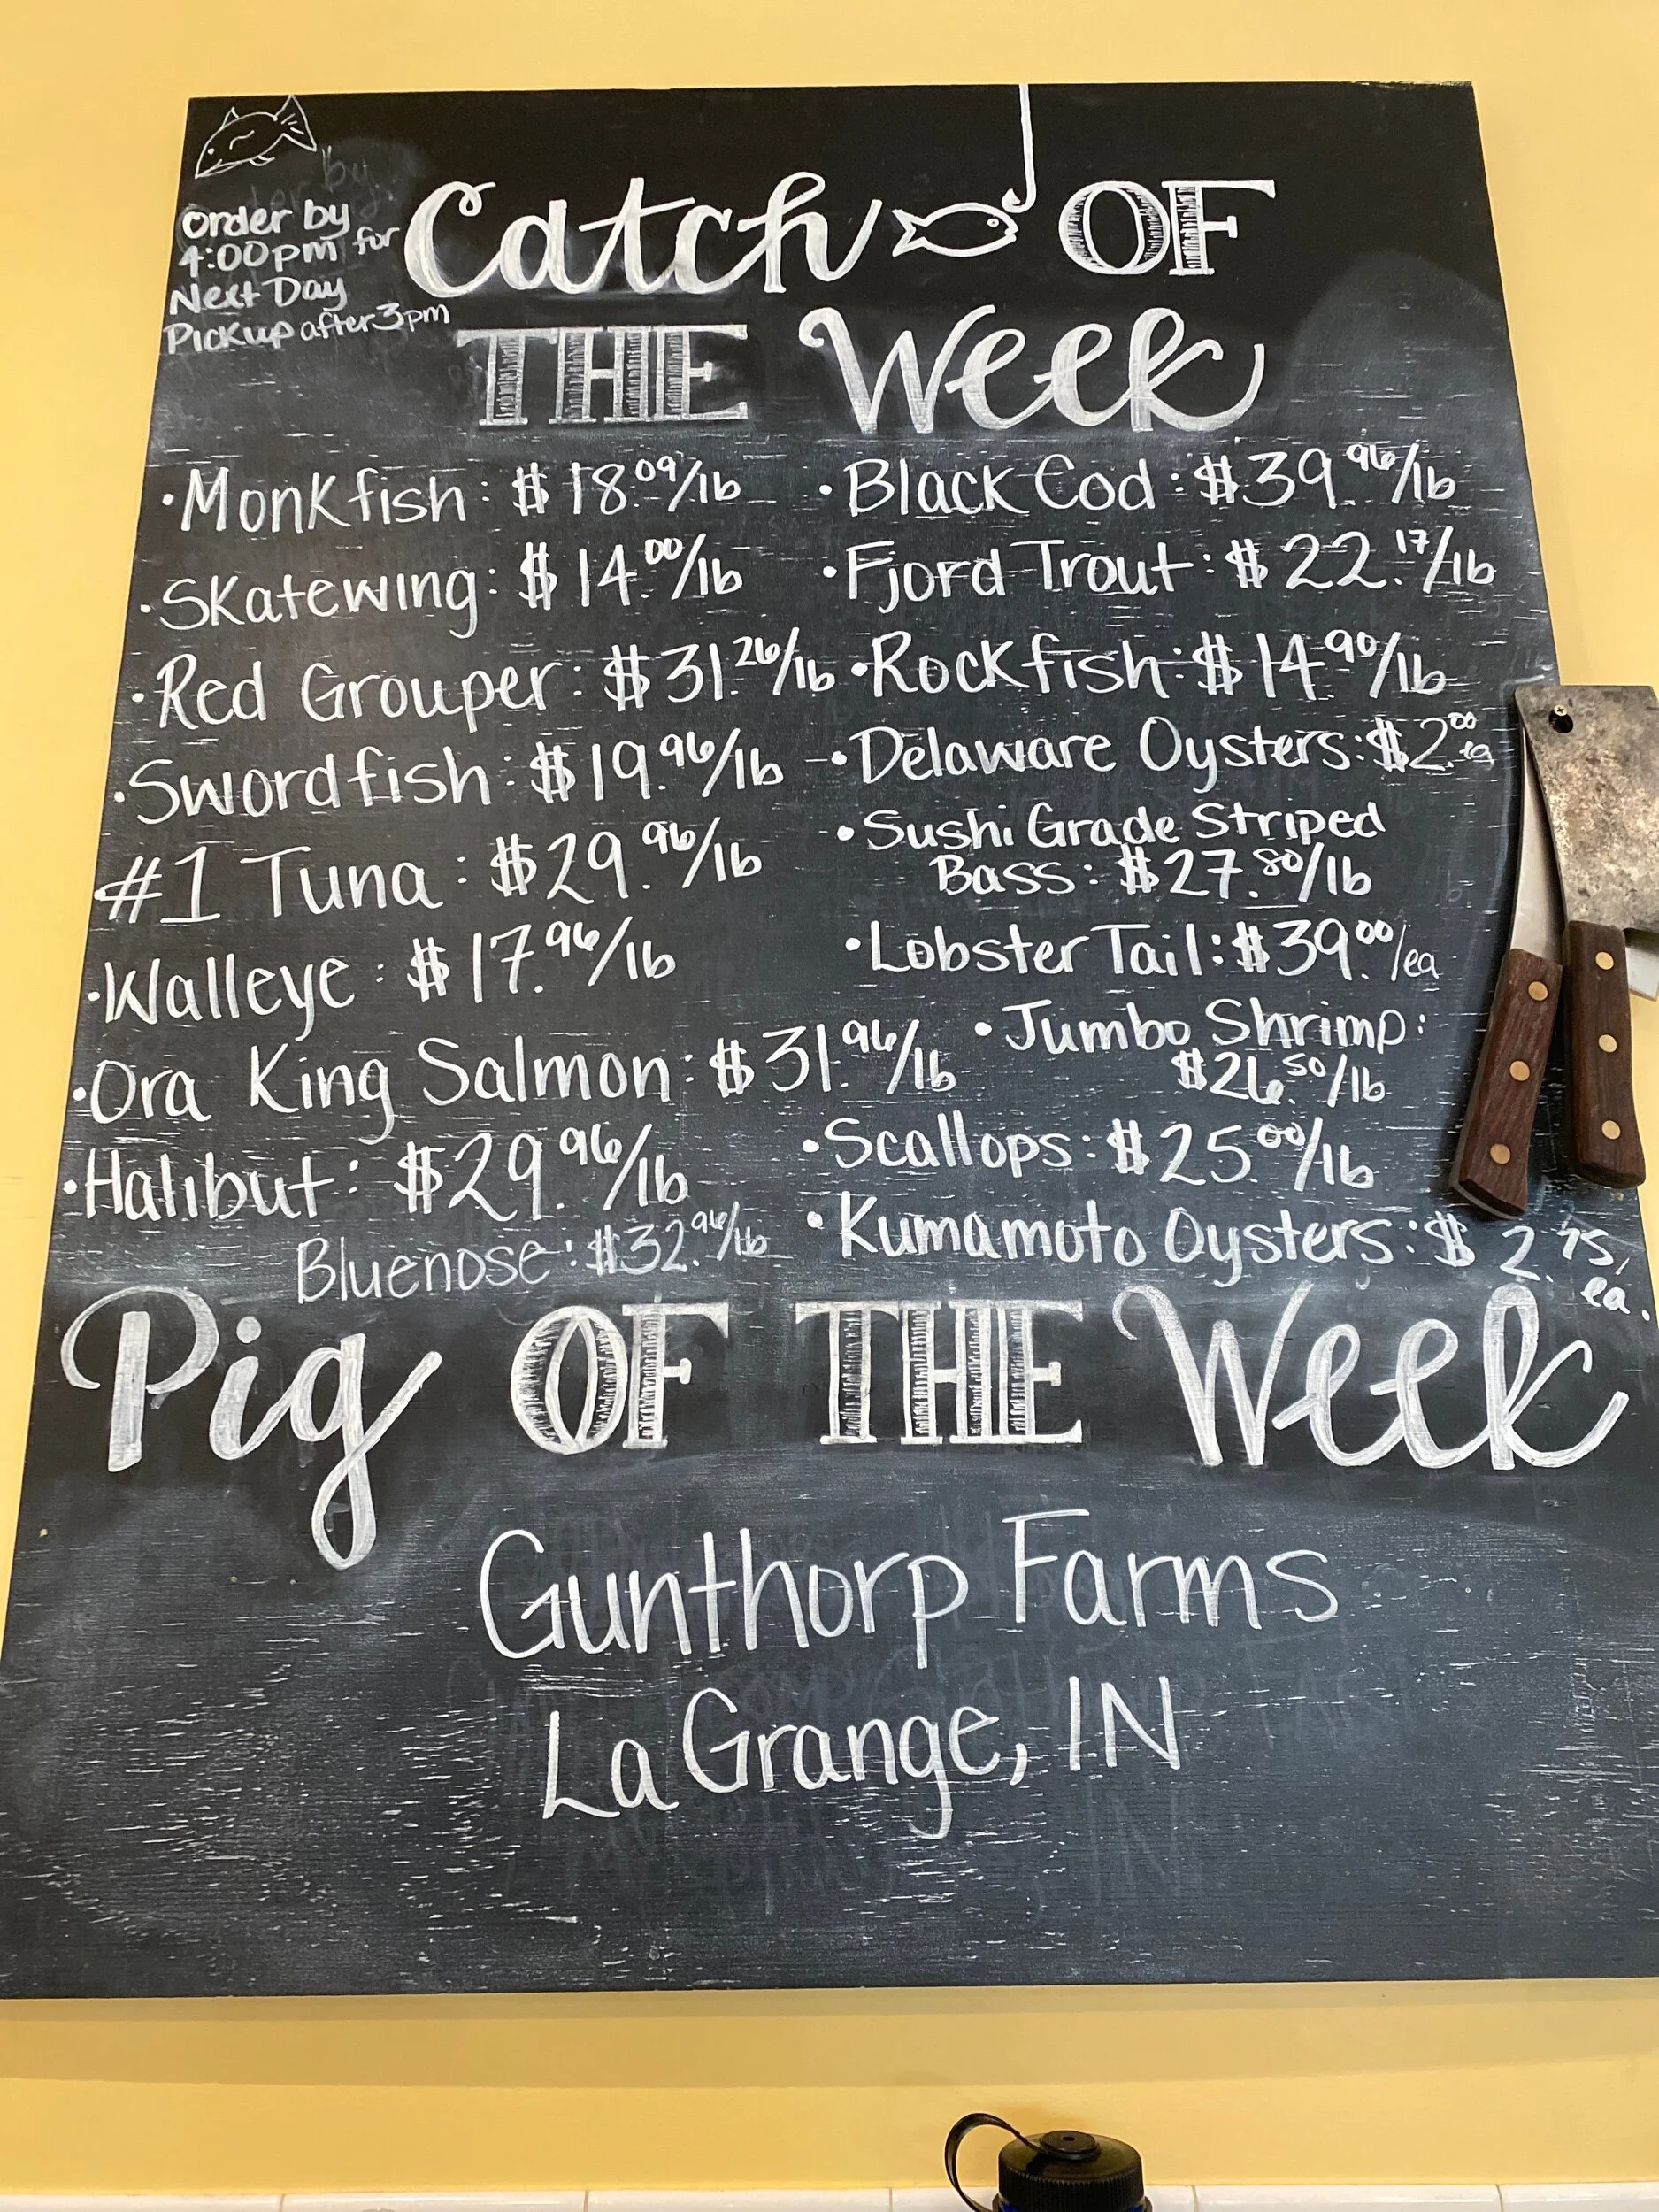 order by
4:00pm for
Next Day
Pickup after 3pm
Catch OF
THE Week
• Monkfish: $18.09/lb
• Skatewing: $14.00/lb
• Red Grouper: $31.26/lb
• Swordfish: $19.96/lb
#1 Tuna: $29.96/lb
• Walleye: $17.96/lb
• Ora King Salmon: $31.96/lb
• Halibut: $29.96/lb
Bluenose: $32.96/lb
• Black Cod: $39.96/lb
• Fjord Trout: $22.17/lb
• Rockfish: $14.90/lb
• Delaware Oysters: $2.00 ea
• Sushi Grade Striped
Bass: $27.80/lb
• Lobster Tail: $39.00/ea
• Jumbo Shrimp:
$26.50/lb
• Scallops: $25.00/lb
• Kumamoto Oysters: $2.75/
ea.
Pig OF THE Week
Gunthorp Farms
LaGrange, IN